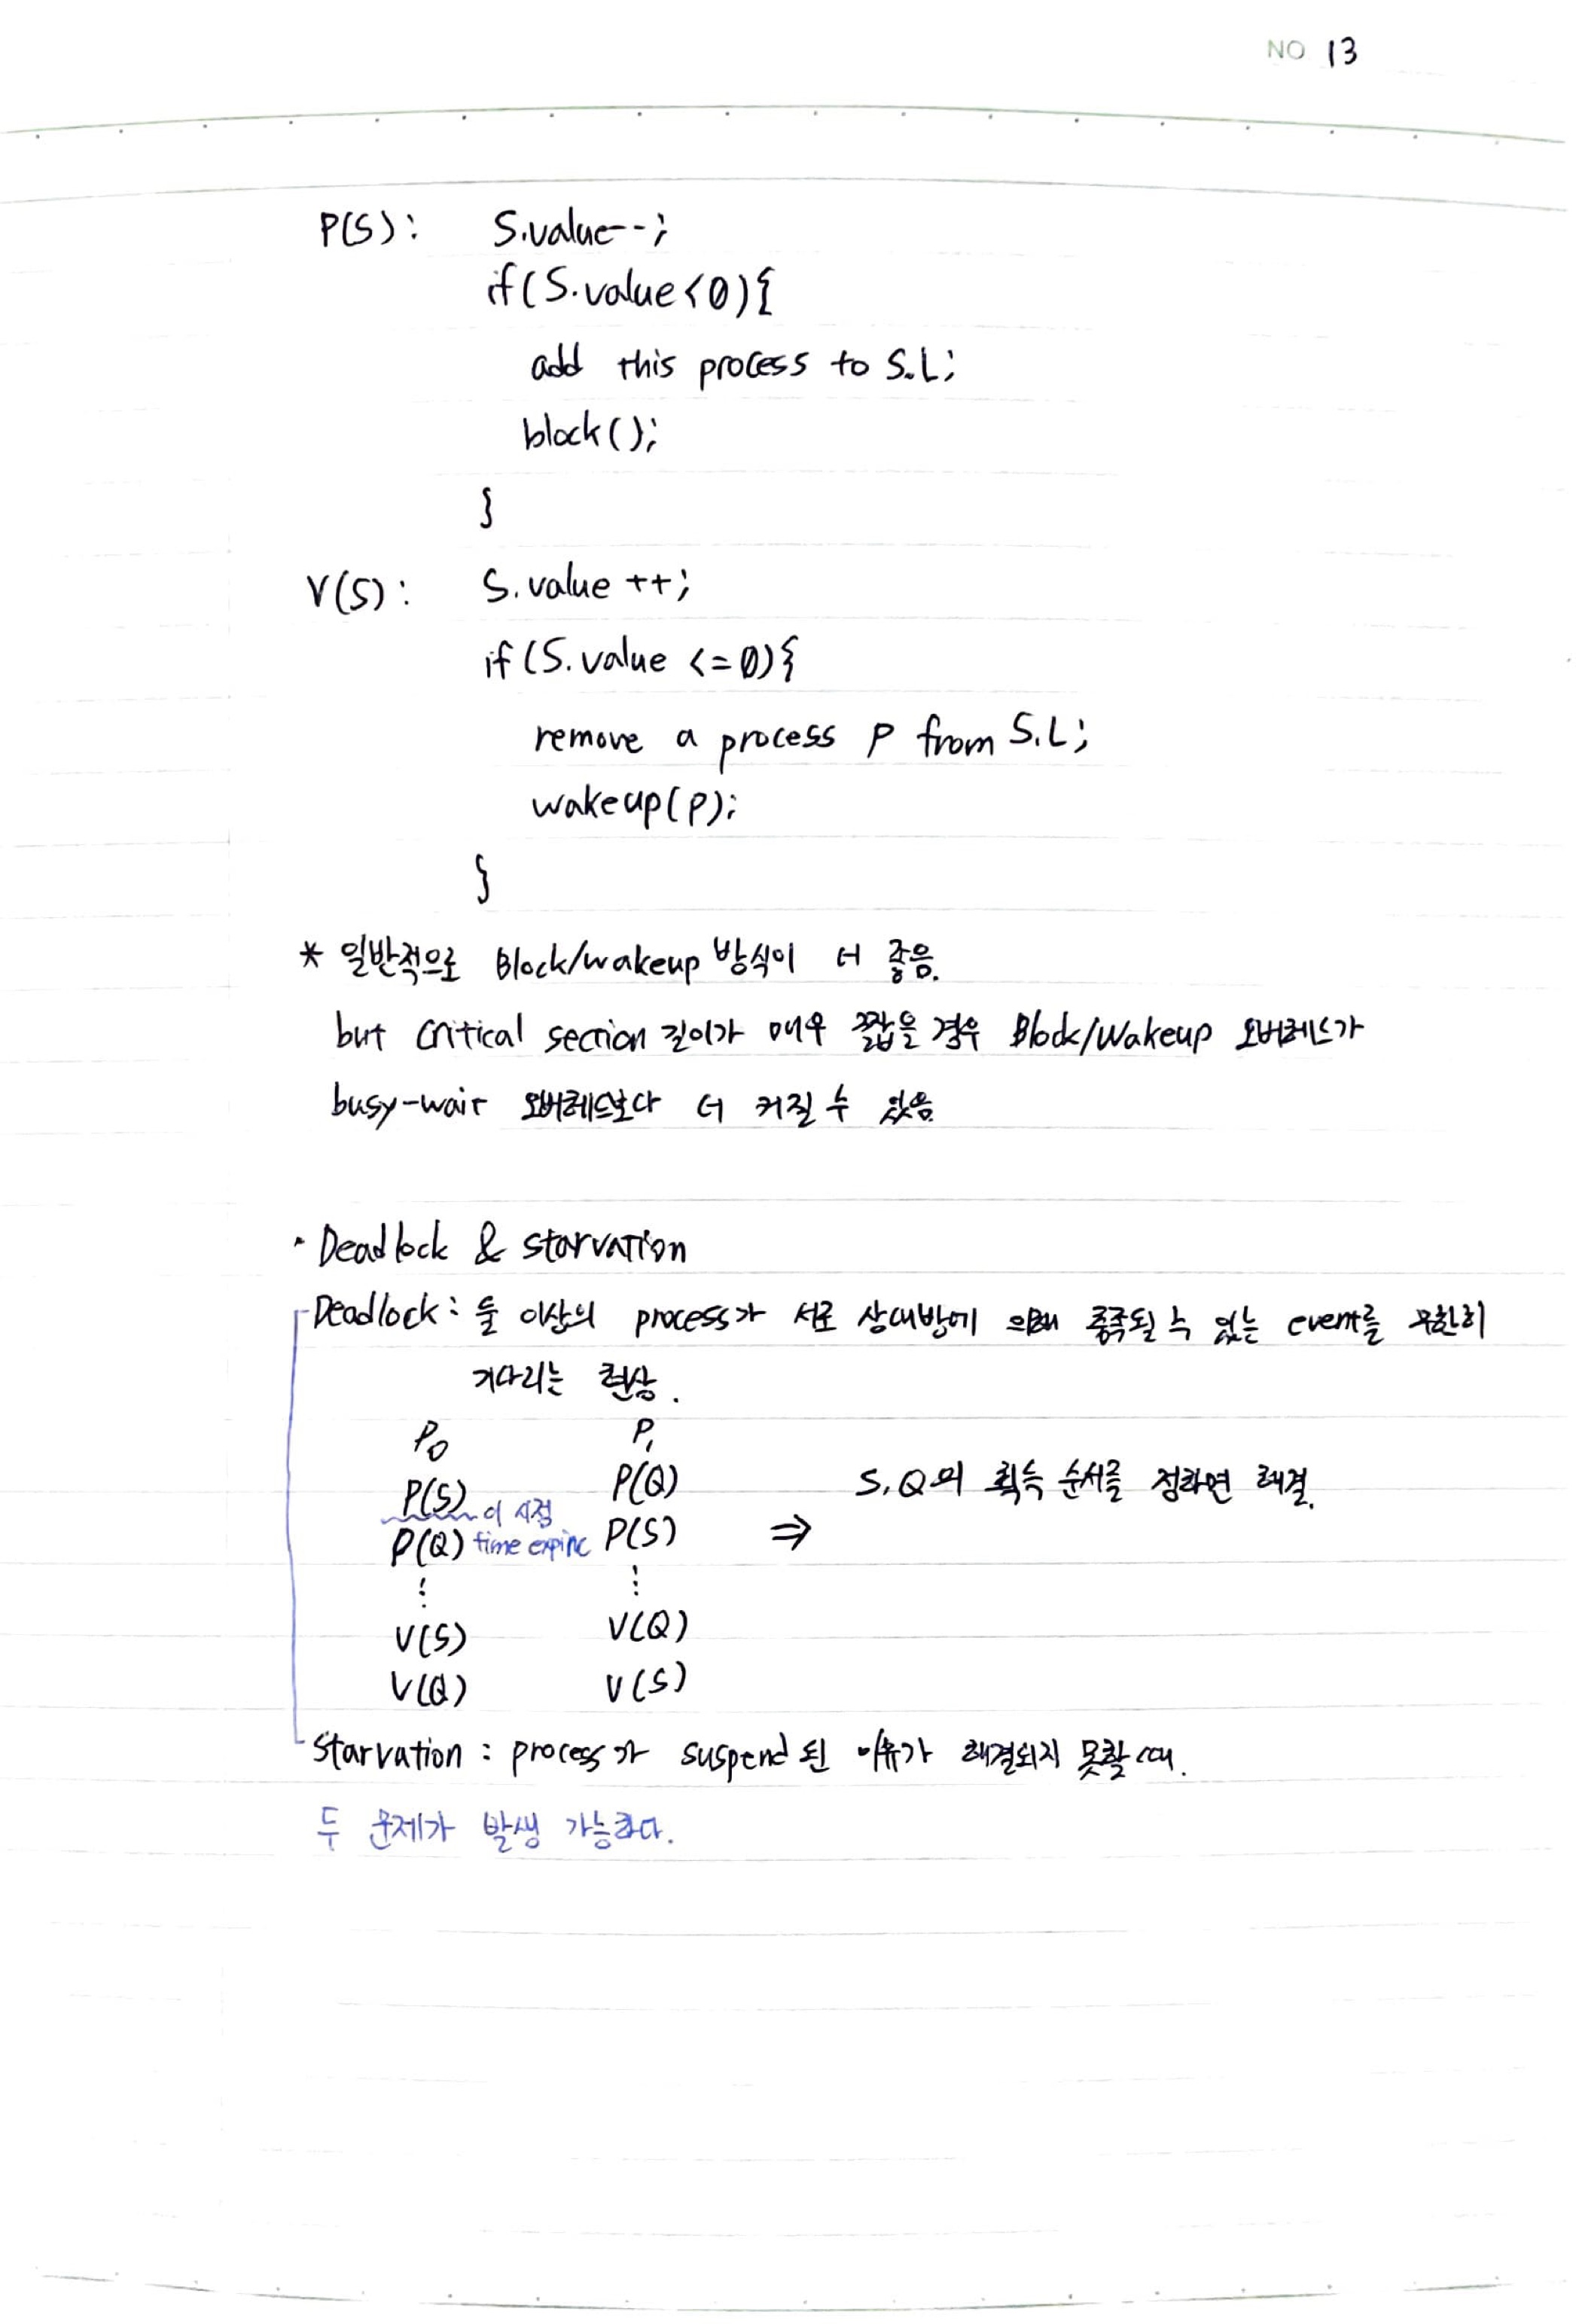 NO 13
P(S): S.value--;
if(S.value<0){
add this process to S.L;
block();
}
V(S): S.value ++;
if(S.value <=0){
remove a process P from S.L;
wakeup(P);
}
* 일반적으로 Block/wakeup 방식이 더 좋음.
but critical section 길이가 매우 짧은 경우 Block/Wakeup 오버헤드가
busy-wait 오버헤드보다 더 커질 수 있음.
· Deadlock & starvation
Deadlock : 둘 이상의 process가 서로 상대방에 의해 충족될 수 있는 event를 무한히
기다리는 현상.
P0 P1
P(S) 이 시점 P(Q) S, Q의 획득 순서를 정하면 해결.
P(Q) time expire P(S) ⇒
⋮ ⋮
V(S) V(Q)
V(Q) V(S)
Starvation : process가 suspend 된 이유가 해결되지 못할 때.
두 문제가 발생 가능하다.